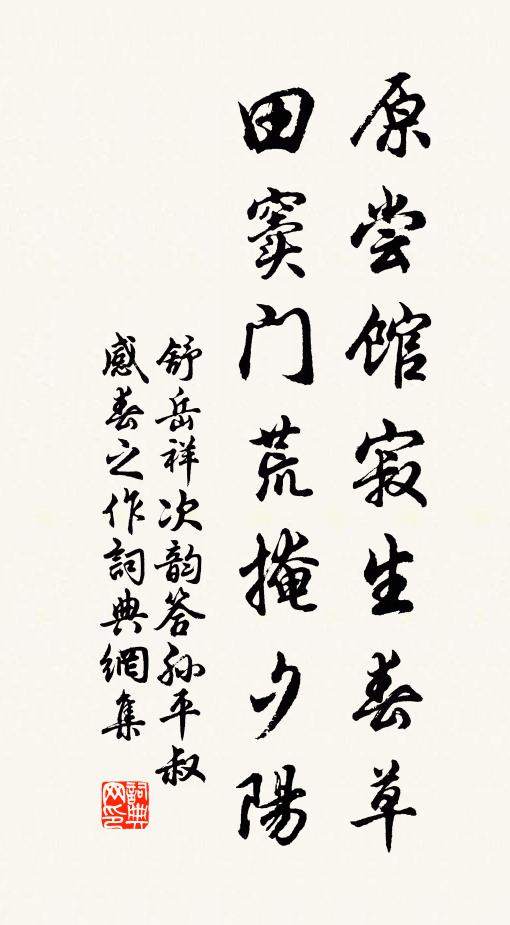 原尝馆寂生春草
田窦门荒掩夕陽
舒岳祥次韵答孙平叔
感春之作詞典網集
詞典网印